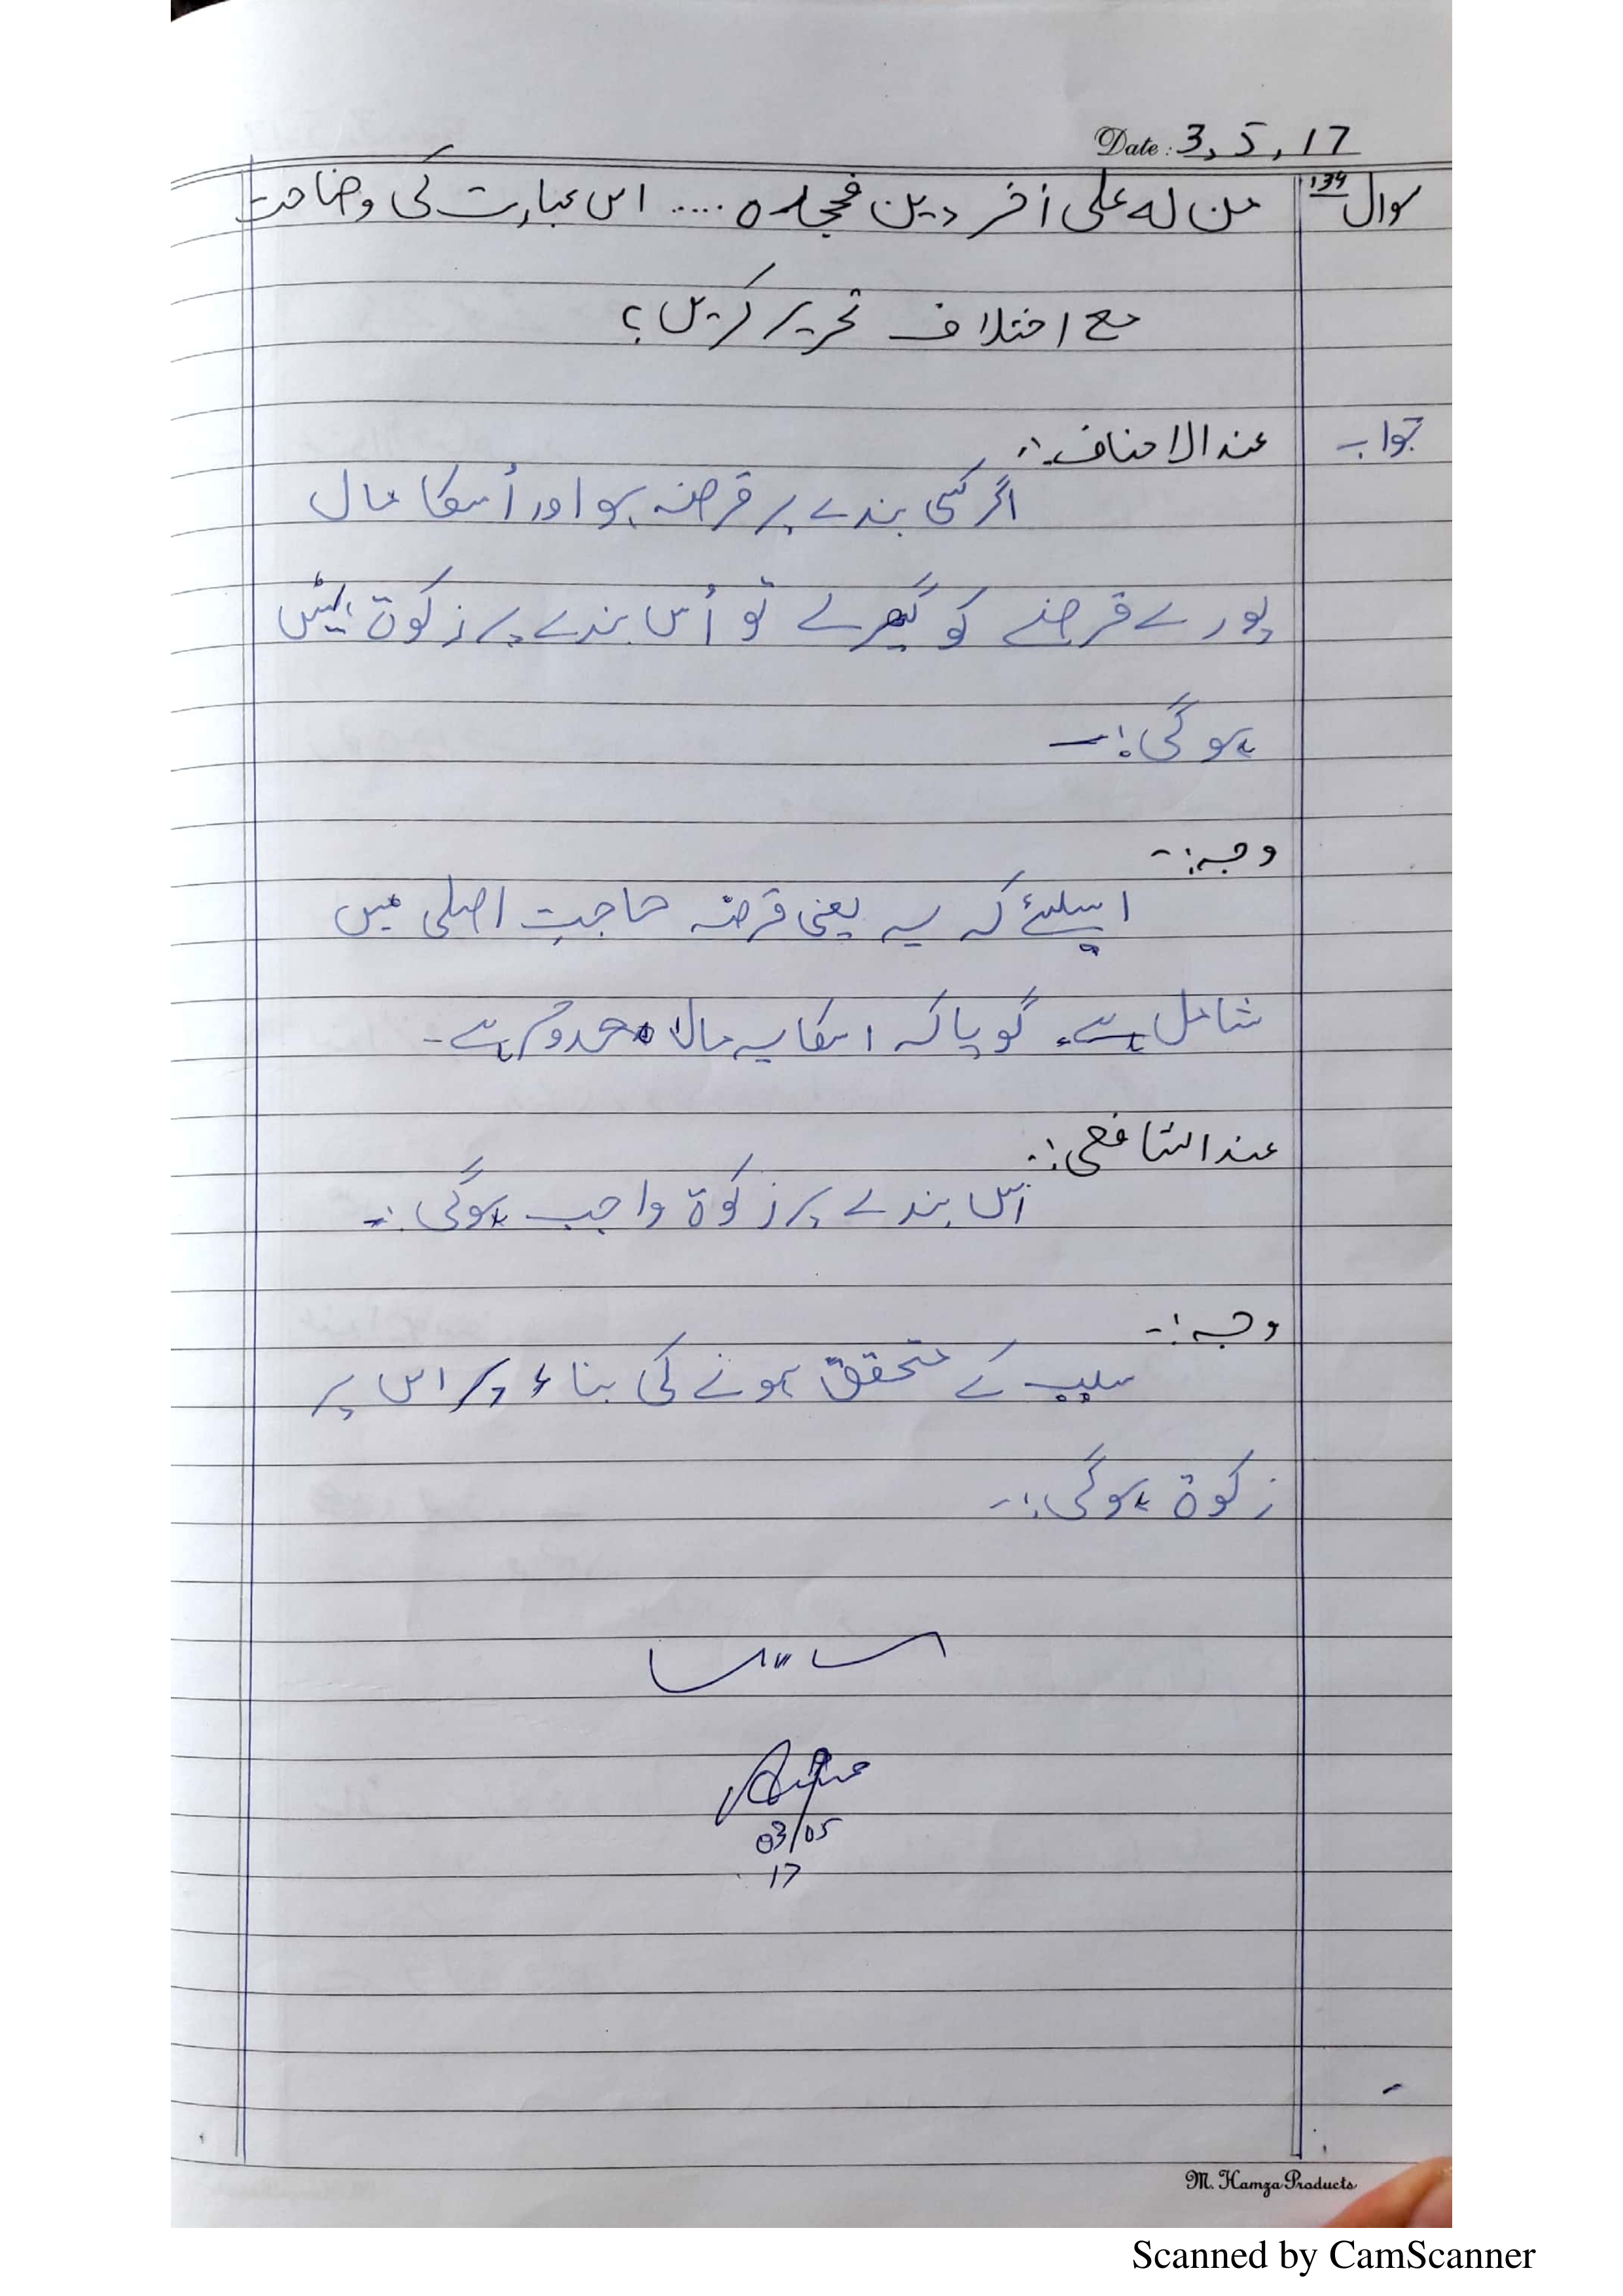 Date: 3, 5, 17
سوال 134 من له على أخر دين فجحده ..... اس عبارت کی وضاحت
مع اختلاف تحریر کریں؟
جواب عند الاحناف:-
اگر کسی بندے پر قرضہ ہو اور اُسکا مال
پورے قرضے کو گھیرلے تو اُس بندے پر زکوۃ نہیں
ہوگی:-
وجہ:-
اسلئے کہ یہ یعنی قرضہ حاجتِ اصلی میں
شامل ہے۔ گویا کہ اسکا یہ مال معدوم ہے۔
عند الشافعی:-
اس بندے پر زکوۃ واجب ہوگی:-
وجہ:-
سبب کے متحقق ہونے کی بناء پر اس پر
زکوۃ ہوگی:-
03/05
17
M. Hamza Products
Scanned by CamScanner